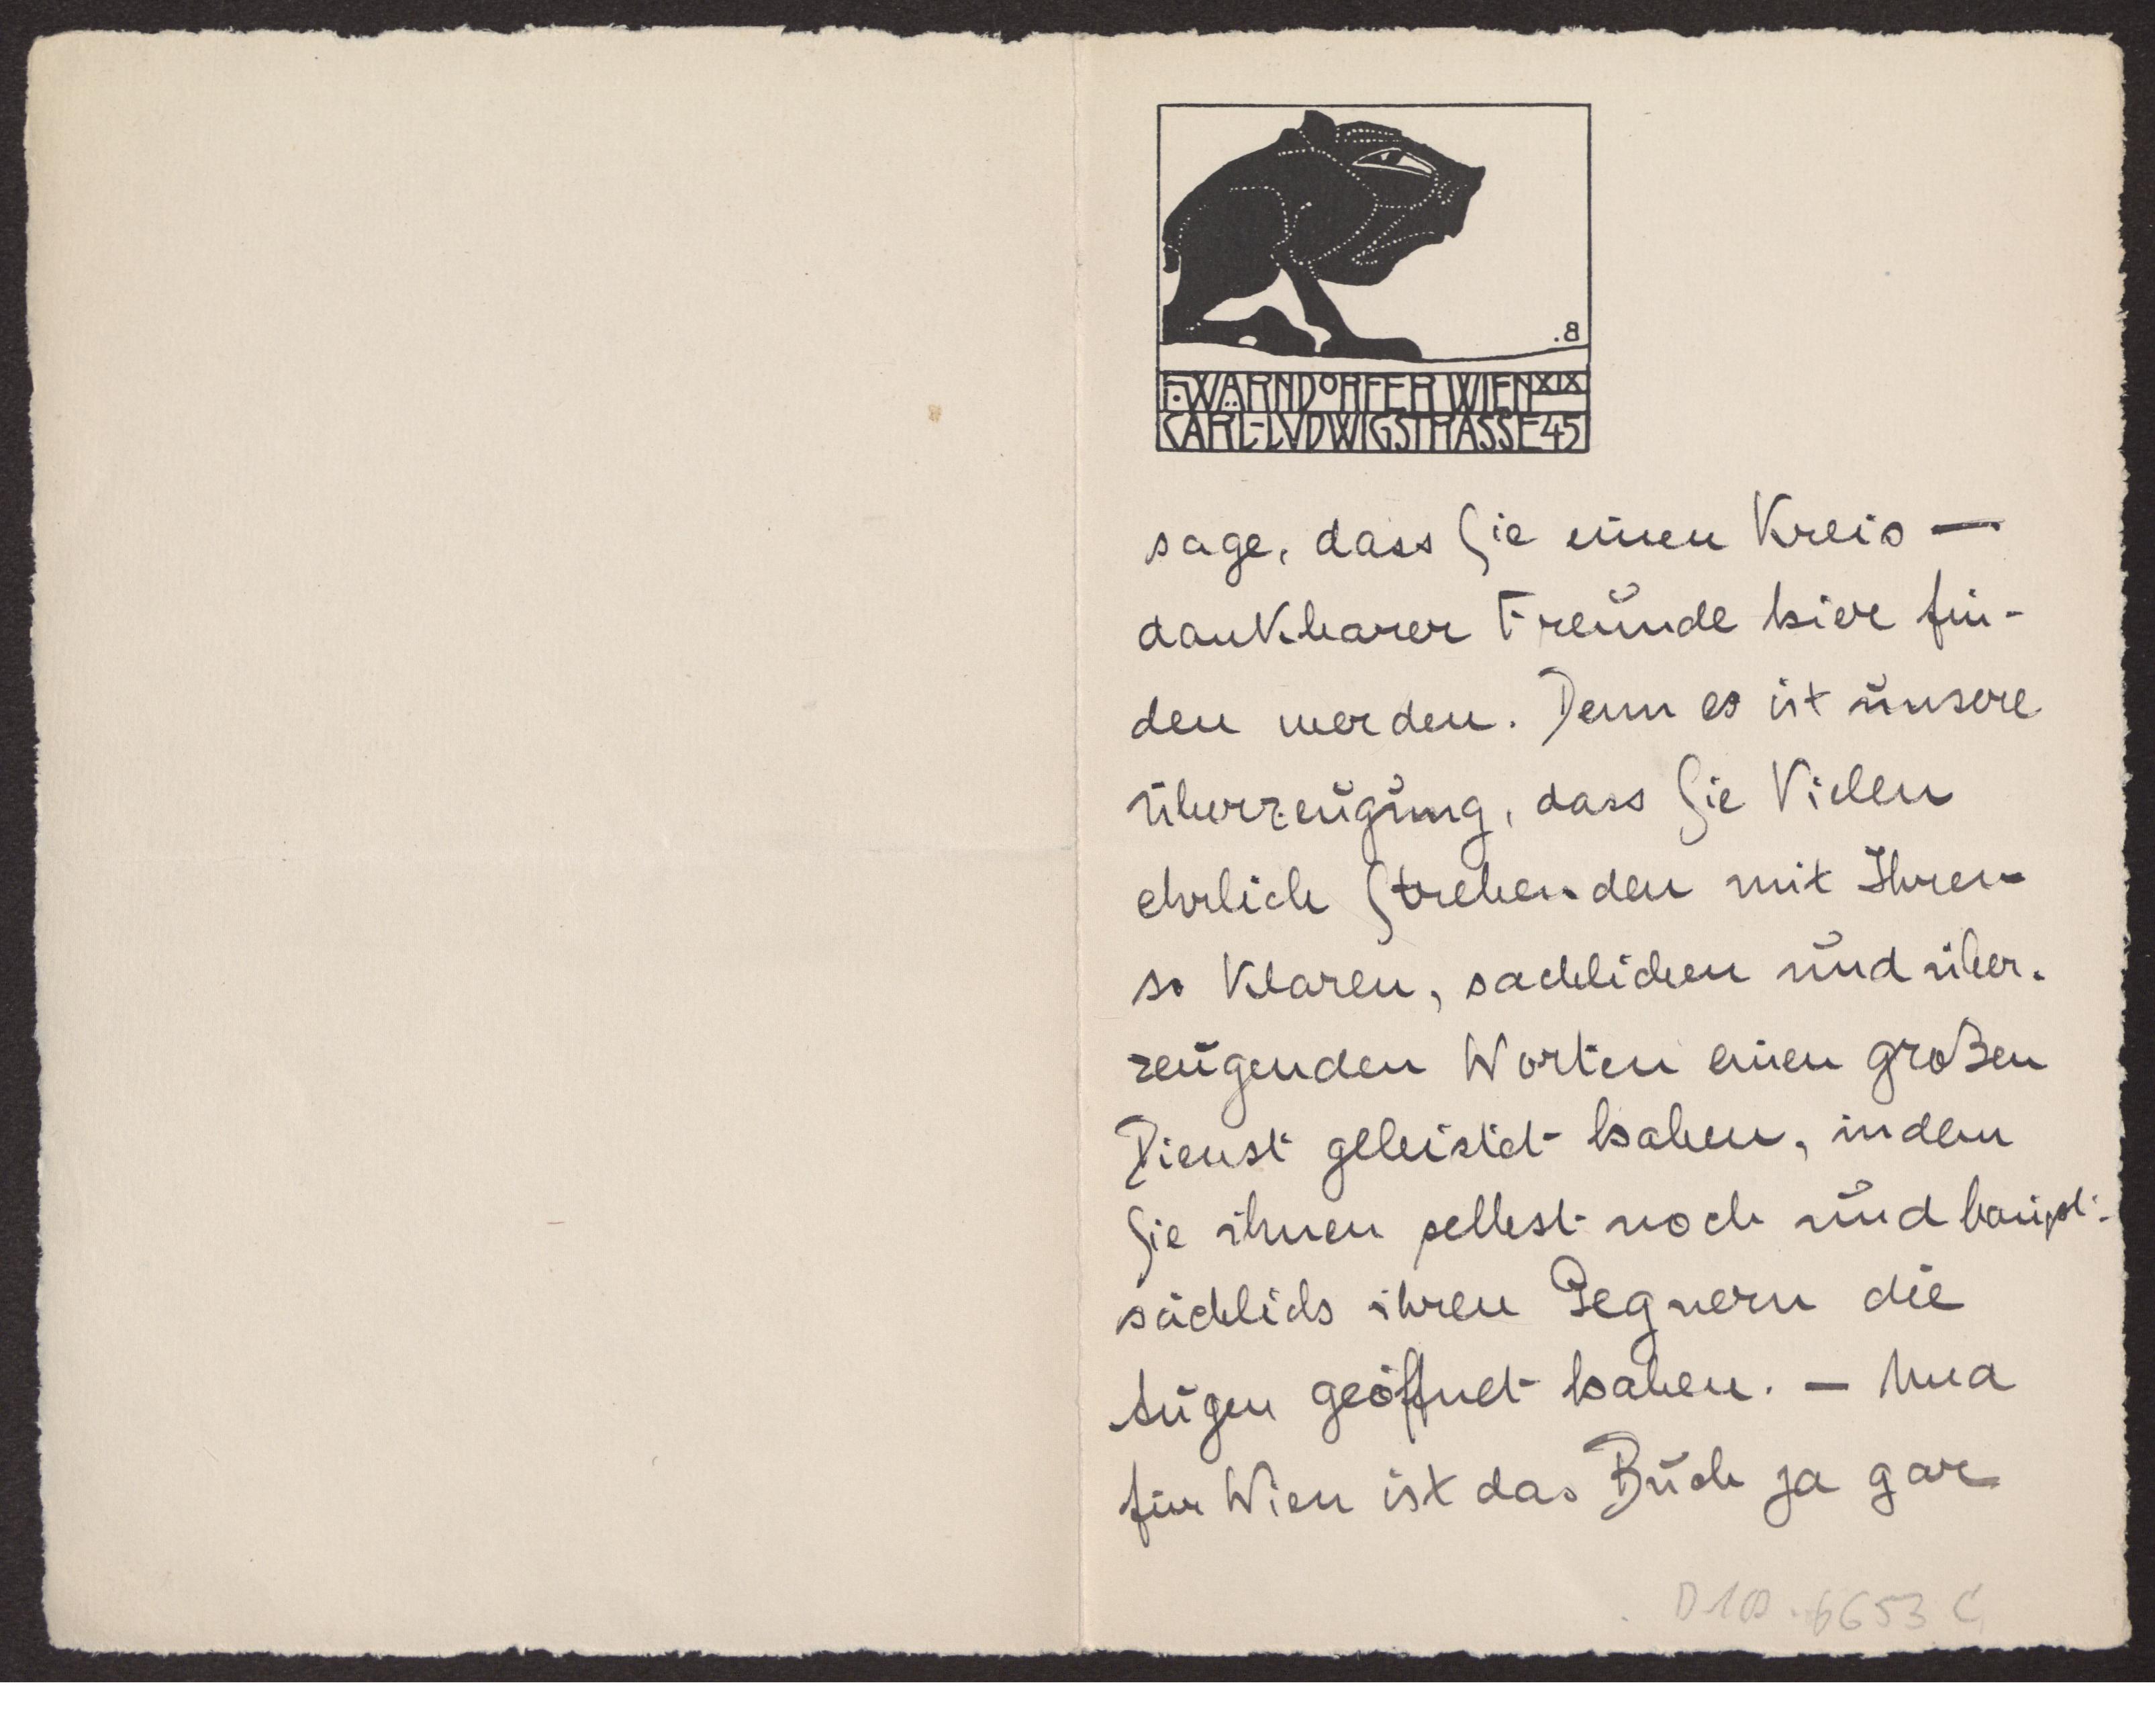 .B
F. WÄRNDORFER WIEN XIX
CARL-LVDWIGSTRASSE 45
sage, dass Sie einen Kreis —
dankbarer Freunde hier fin-
den werden. Denn es ist unsere
Überzeugung, dass Sie Vielen
ehrlich Strebenden mit Ihren
so klaren, sachlichen und über-
zeugenden Worten einen großen
Dienst geleistet haben, indem
Sie ihnen selbst noch und haupt-
sächlich ihren Gegnern die
Augen geöffnet haben. — Und
für Wien ist das Buch ja gar
D 100. 6653 C